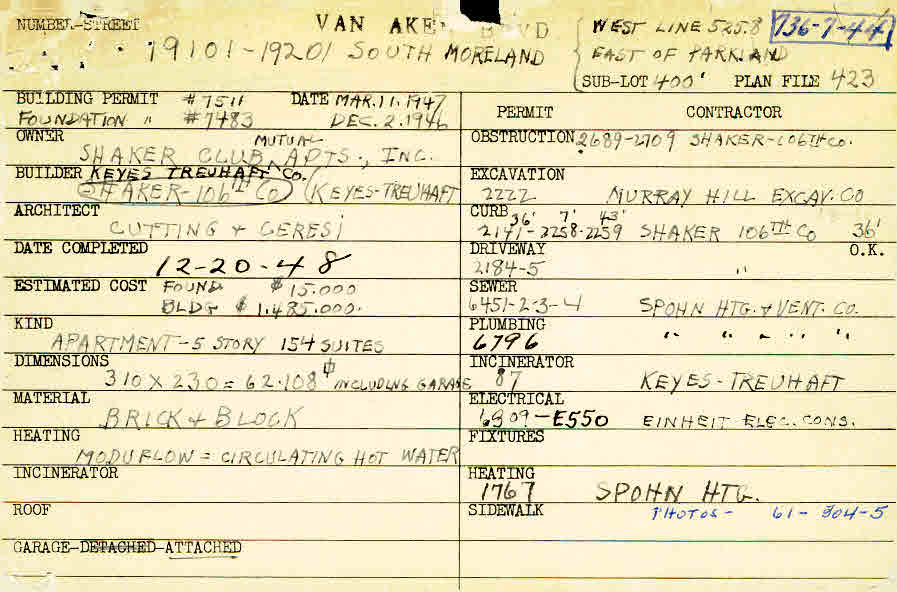 NUMBER-STREET VAN AKEN BLVD
19101-19201 SOUTH MORELAND
WEST LINE 525.8
EAST OF PARKLAND
SUB-LOT 400' PLAN FILE 423
736-7-44
BUILDING PERMIT #7511 DATE MAR. 11. 1947
FOUNDATION " #7483 DEC. 2. 1946
OWNER MUTUAL
SHAKER CLUB APTS., INC.
BUILDER KEYES TREUHAFT Co.
SHAKER-106TH CO (KEYES-TREUHAFT
ARCHITECT
CUTTING + CERESI
DATE COMPLETED
12-20-48
ESTIMATED COST FOUND $15.000
BLDG $1.485.000.
KIND
APARTMENT-5 STORY 154 SUITES
DIMENSIONS
310 X 230 = 62.108 INCLUDING GARAGE
MATERIAL
BRICK + BLOCK
HEATING
MODUFLOW = CIRCULATING HOT WATER
INCINERATOR
ROOF
GARAGE-DETACHED-ATTACHED
PERMIT CONTRACTOR
OBSTRUCTION 2689-2709 SHAKER-106TH CO.
EXCAVATION
2222 MURRAY HILL EXCAV. CO
CURB 36' 7' 43'
2141-2258-2259 SHAKER 106TH CO 36'
DRIVEWAY O.K.
2184-5 "
SEWER
6451-2-3-4 SPOHN HTG. + VENT. CO.
PLUMBING
6796 " " " " "
INCINERATOR
87 KEYES-TREUHAFT
ELECTRICAL
6809-E550 EINHEIT ELEC. CONS.
FIXTURES
HEATING
1767 SPOHN HTG.
SIDEWALK PHOTOS- 61-304-5